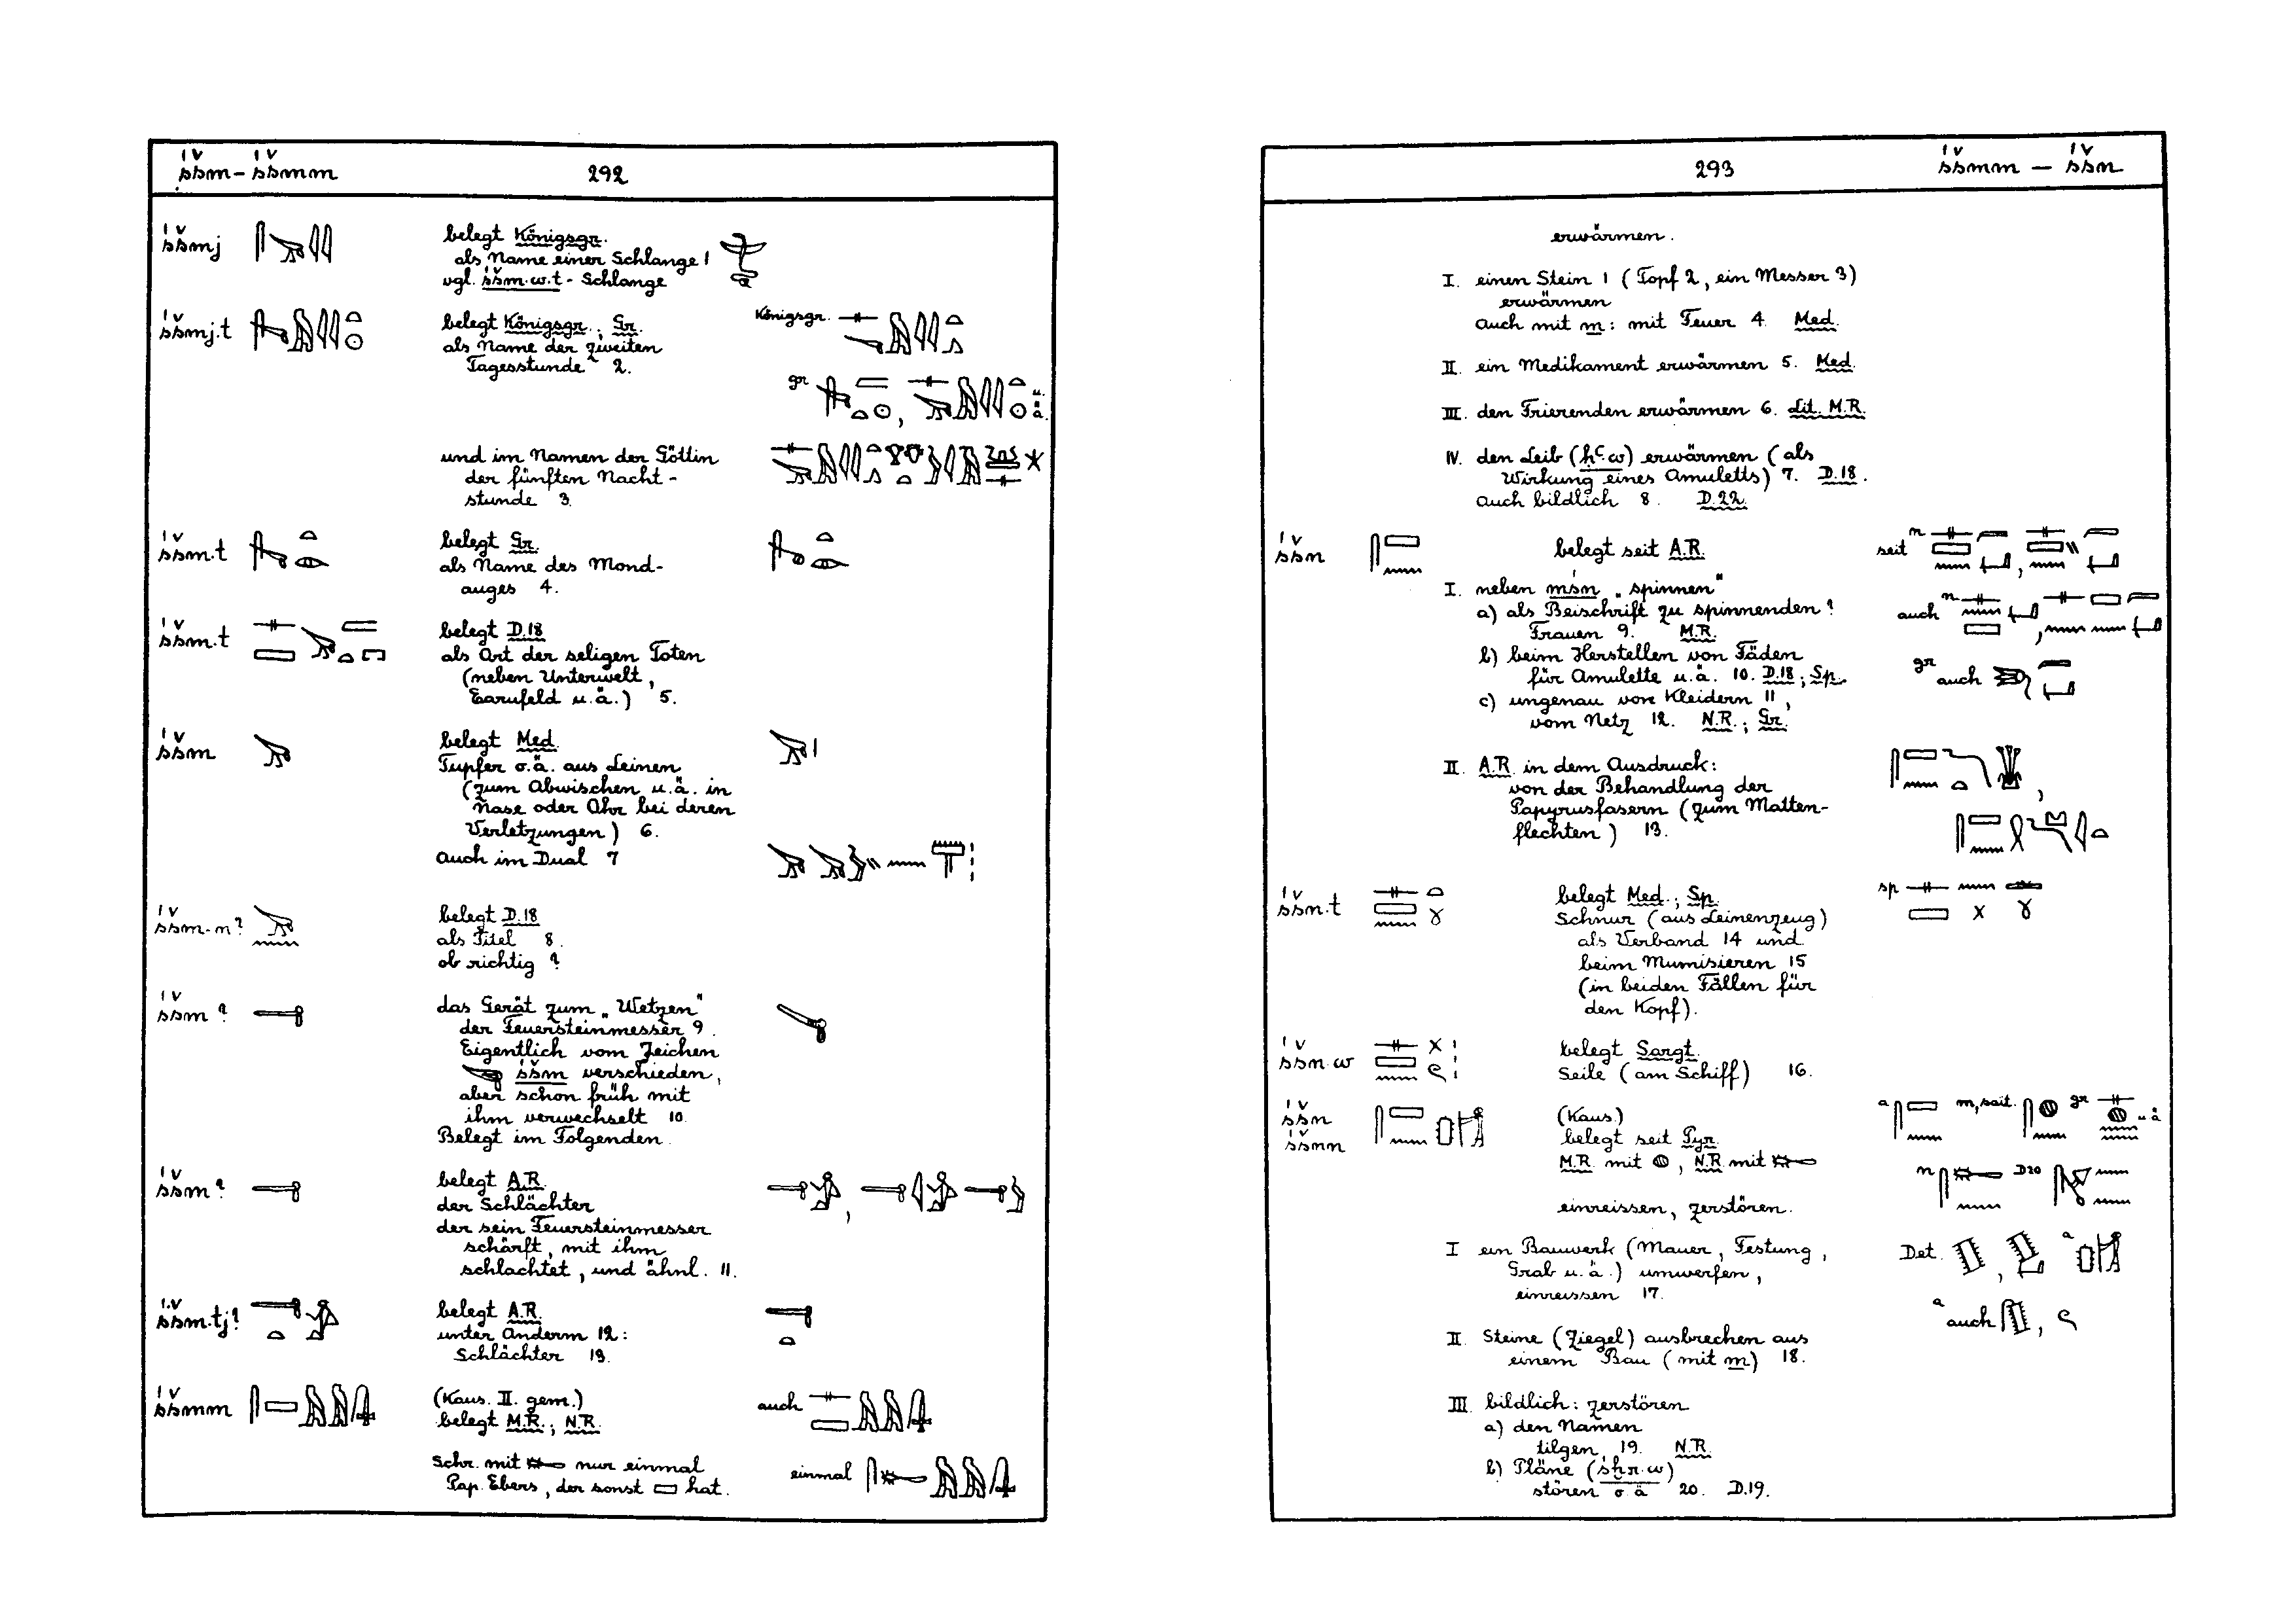 śšm – śšmm 292
śšmj belegt Königsgr.
als Name einer Schlange 1
vgl. śšm.w.t - Schlange
śšmj.t belegt Königsgr.; Gr. Königsgr.
als Name der zweiten
Tagesstunde 2. gr , u. ä.
und im Namen der Göttin
der fünften Nacht-
stunde 3.
śšm.t belegt Gr.
als Name des Mond-
auges 4.
śšm.t belegt D.18
als Ort der seligen Toten
(neben Unterwelt,
Earufeld u.ä.) 5.
śšm belegt Med.
Tupfer o.ä. aus Leinen
(zum Abwischen u.ä. in
Nase oder Ohr bei deren
Verletzungen) 6.
auch im Dual 7
śšm-n? belegt D.18
als Titel 8.
ob richtig?
śšm? das Gerät zum „Wetzen"
der Feuersteinmesser 9.
Eigentlich vom Zeichen
śšm verschieden,
aber schon früh mit
ihm verwechselt 10.
Belegt im Folgenden.
śšm? belegt A.R.
der Schlächter
der sein Feuersteinmesser
schärft, mit ihm
schlachtet, und ähnl. 11.
śšm.tj? belegt A.R.
unter Anderm 12:
Schlächter 13.
śšmm (Kaus. II. gem.) auch
belegt M.R.; N.R.
Schr. mit nur einmal einmal
Pap. Ebers, der sonst hat.
293 śšmm — śšn
erwärmen.
I. einen Stein 1 (Topf 2, ein Messer 3)
erwärmen
auch mit m: mit Feuer 4. Med.
II. ein Medikament erwärmen 5. Med.
III. den Frierenden erwärmen 6. Lit. M.R.
IV. den Leib (ḥꜥ.w) erwärmen (als
Wirkung eines Amuletts) 7. D.18.
auch bildlich 8. D.22.
śšn belegt seit A.R. seit n ,
I. neben mśn „spinnen"
a) als Beischrift zu spinnenden? auch n ,
Frauen 9. M.R.
b) beim Herstellen von Fäden
für Amulette u.ä. 10. D.18; Sp. gr auch
c) ungenau von Kleidern 11,
vom Netz 12. N.R.; Gr.
II. A.R. in dem Ausdruck:
von der Behandlung der
Papyrusfasern (zum Matten-
flechten) 13.
śšn.t belegt Med.; Sp. sp
Schnur (aus Leinenzeug)
als Verband 14 und
beim Mumisieren 15
(in beiden Fällen für
den Kopf).
śšn.w belegt Sargt.
Seile (am Schiff) 16.
śšn (Kaus.) a m, sait. gr u. ä
śšnn belegt seit Pyr.
M.R. mit , N.R. mit n D20
einreissen, zerstören.
I ein Bauwerk (Mauer, Festung, Det. , a
Grab u.ä.) umwerfen,
einreissen 17. a auch ,
II. Steine (Ziegel) ausbrechen aus
einem Bau (mit m) 18.
III bildlich: zerstören
a) den Namen
tilgen 19. N.R.
b) Pläne (śḫr.w)
stören o.ä 20. D.19.